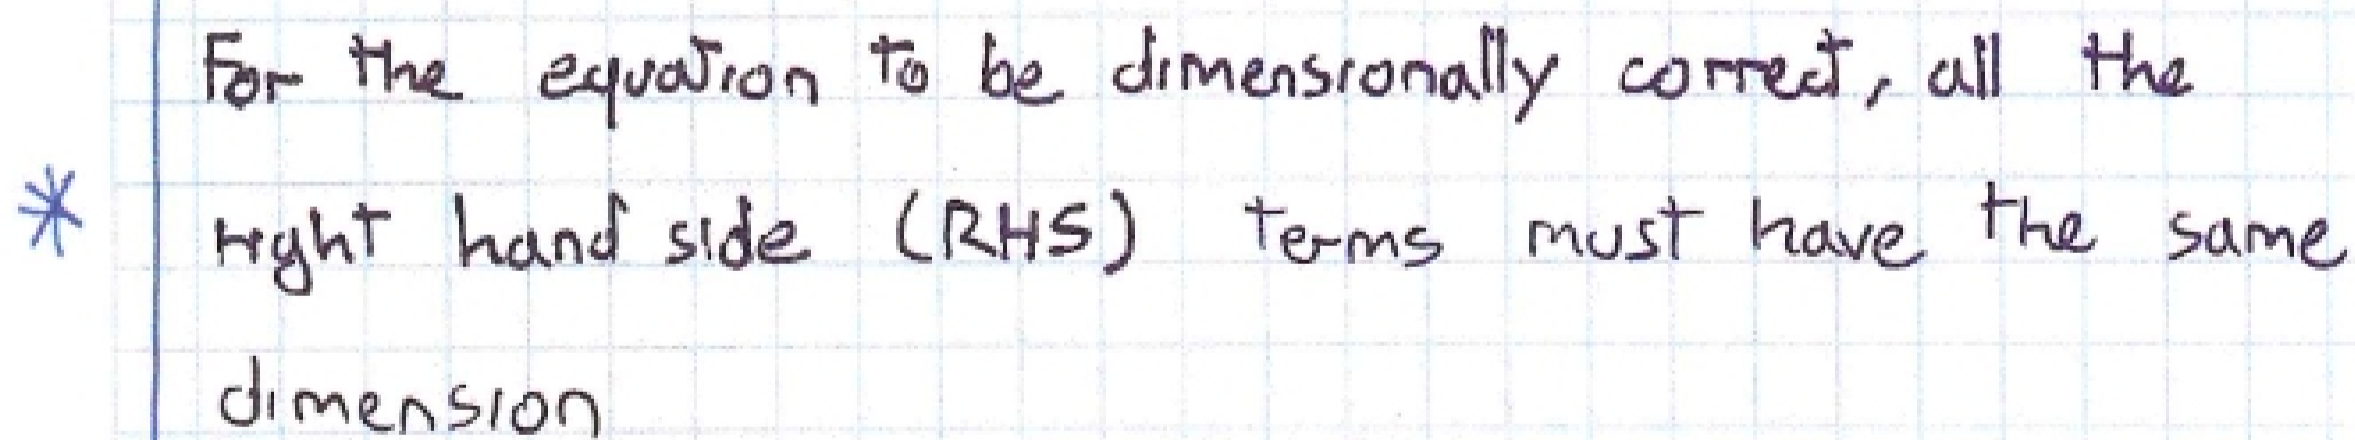 For the equation to be dimensionally correct, all the
* right hand side (RHS) terms must have the same
dimension